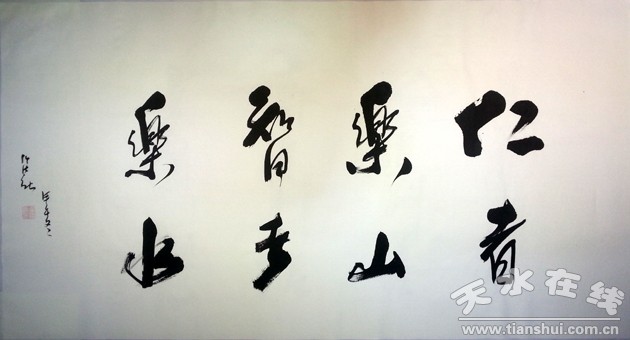 仁者
樂山
智者
樂水
天水在线
www.tianshui.com.cn